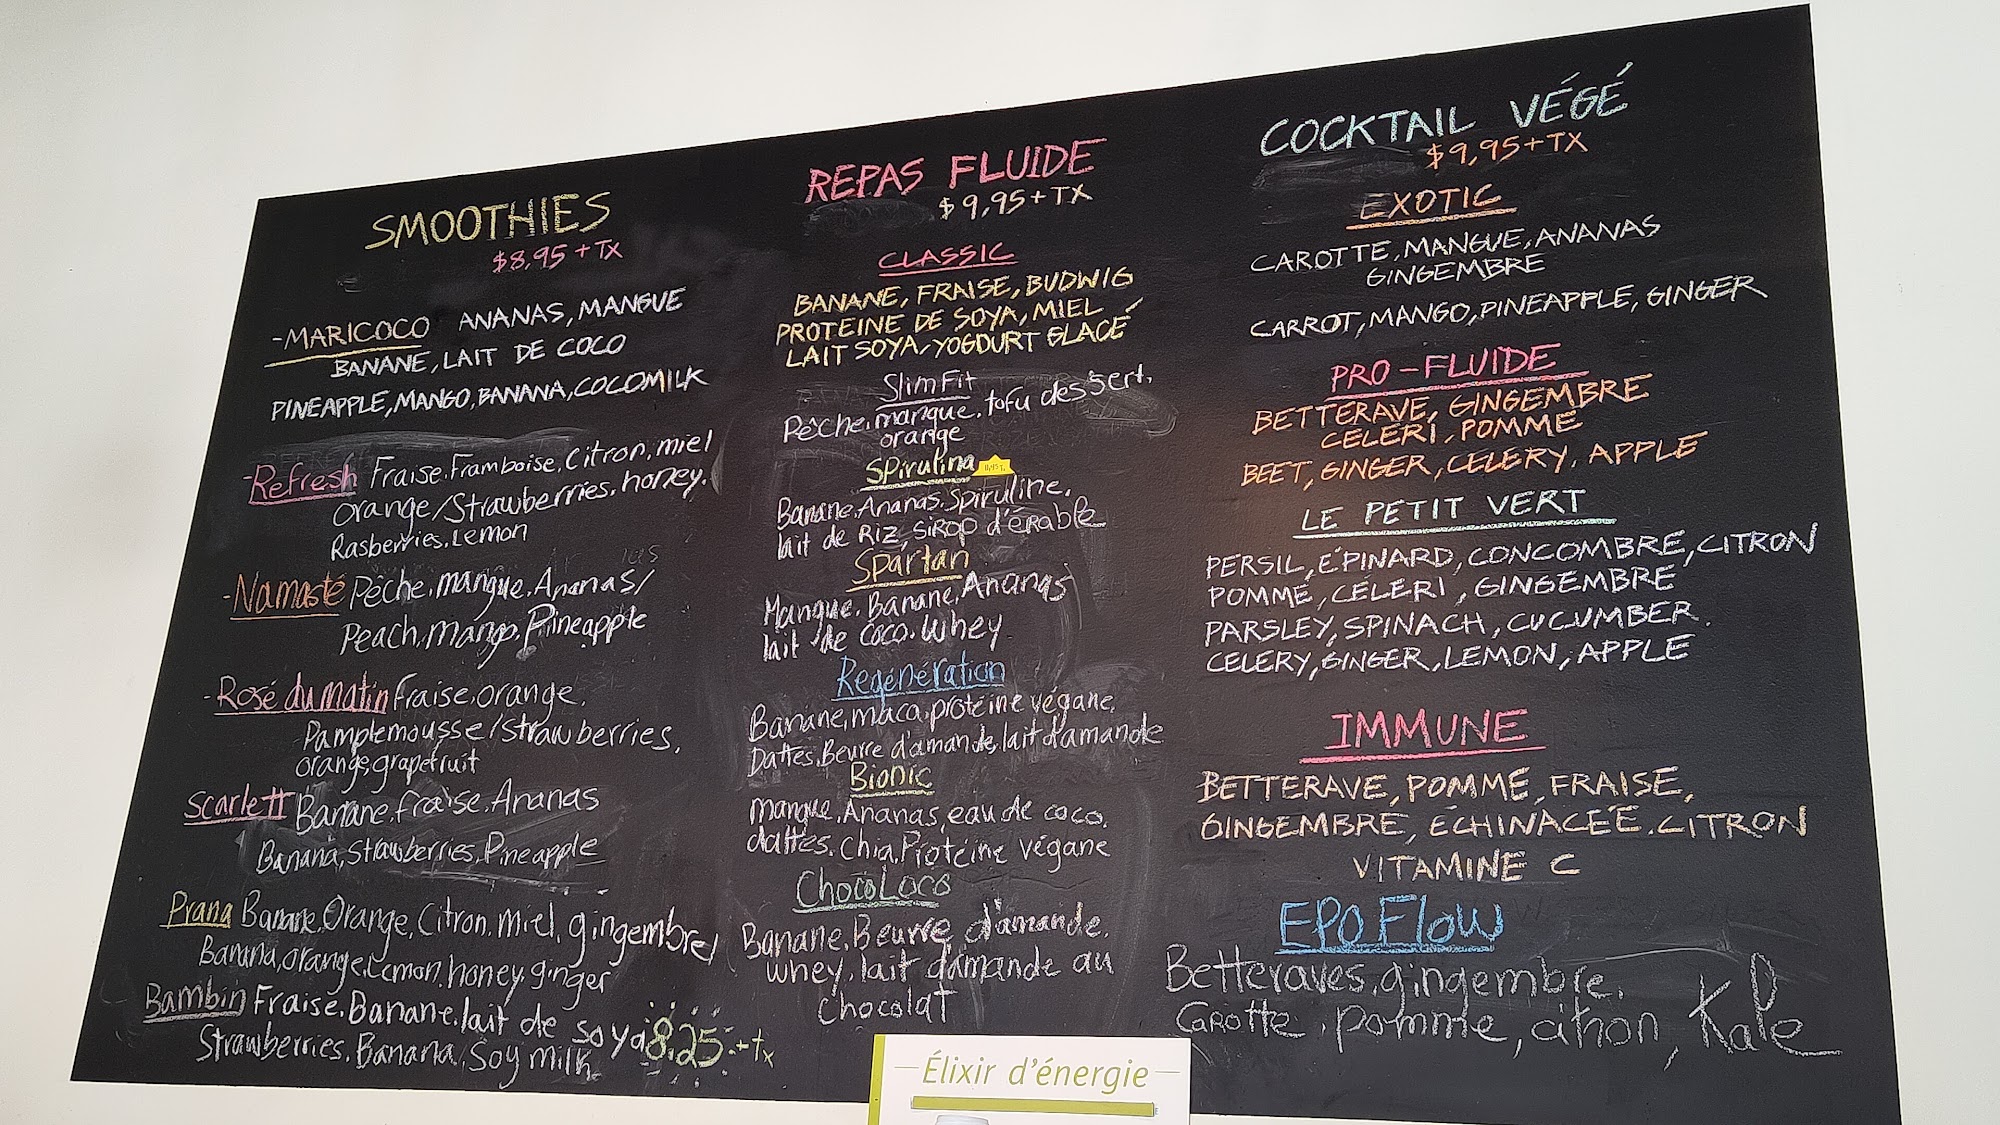 SMOOTHIES
$8,95 + TX
-MARICOCO ANANAS, MANGUE
BANANE, LAIT DE COCO
PINEAPPLE, MANGO, BANANA, COCOMILK
-Refresh Fraise, Framboise, Citron, miel
orange/Strawberries, honey,
Rasberries, Lemon
-Namasté Pêche, mangue, Ananas/
Peach, mango, Pineapple
-Rosé du matin fraise, orange,
Pamplemousse/Strawberries,
orange, grapefruit
Scarlett Banane, fraise, Ananas
Banana, Strawberries, Pineapple
Prana Banane, Orange, Citron, miel, gingembre/
Banana, orange, Lemon, honey, ginger
Bambin Fraise, Banane, lait de soya 8.25 + tx
Strawberries, Banana, Soy milk
REPAS FLUIDE
$9,95 + TX
CLASSIC
BANANE, FRAISE, BUDWIG
PROTEINE DE SOYA, MIEL
LAIT SOYA, YOGOURT GLACÉ
SlimFit
Pêche, mangue, tofu dessert,
orange
Spirulina
Banane, Ananas, Spiruline,
lait de Riz, sirop d'érable
Spartan
Mangue, Banane, Ananas
lait de coco, whey
Regénération
Banane, maca, protéine végane,
Dattes, Beurre d'amande, lait d'amande
Bionic
mangue, Ananas, eau de coco,
dattes, chia, Protéine végane
ChocoLoco
Banane, Beurre d'amande,
whey, lait d'amande au
chocolat
COCKTAIL VÉGÉ
$9,95 + TX
EXOTIC
CAROTTE, MANGUE, ANANAS
GINGEMBRE
CARROT, MANGO, PINEAPPLE, GINGER
PRO-FLUIDE
BETTERAVE, GINGEMBRE
CÉLERI, POMME
BEET, GINGER, CELERY, APPLE
LE PETIT VERT
PERSIL, ÉPINARD, CONCOMBRE, CITRON
POMME, CÉLERI, GINGEMBRE
PARSLEY, SPINACH, CUCUMBER.
CELERY, GINGER, LEMON, APPLE
IMMUNE
BETTERAVE, POMME, FRAISE,
GINGEMBRE, ÉCHINACÉE, CITRON
VITAMINE C
EPO FLOW
Betteraves, gingembre,
Carotte, pomme, citron, Kale
Élixir d'énergie